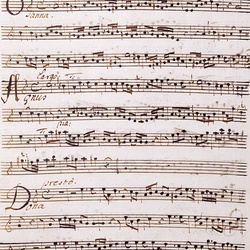 Osanna.
Largo
Agnus
pia:
presto.
Dona